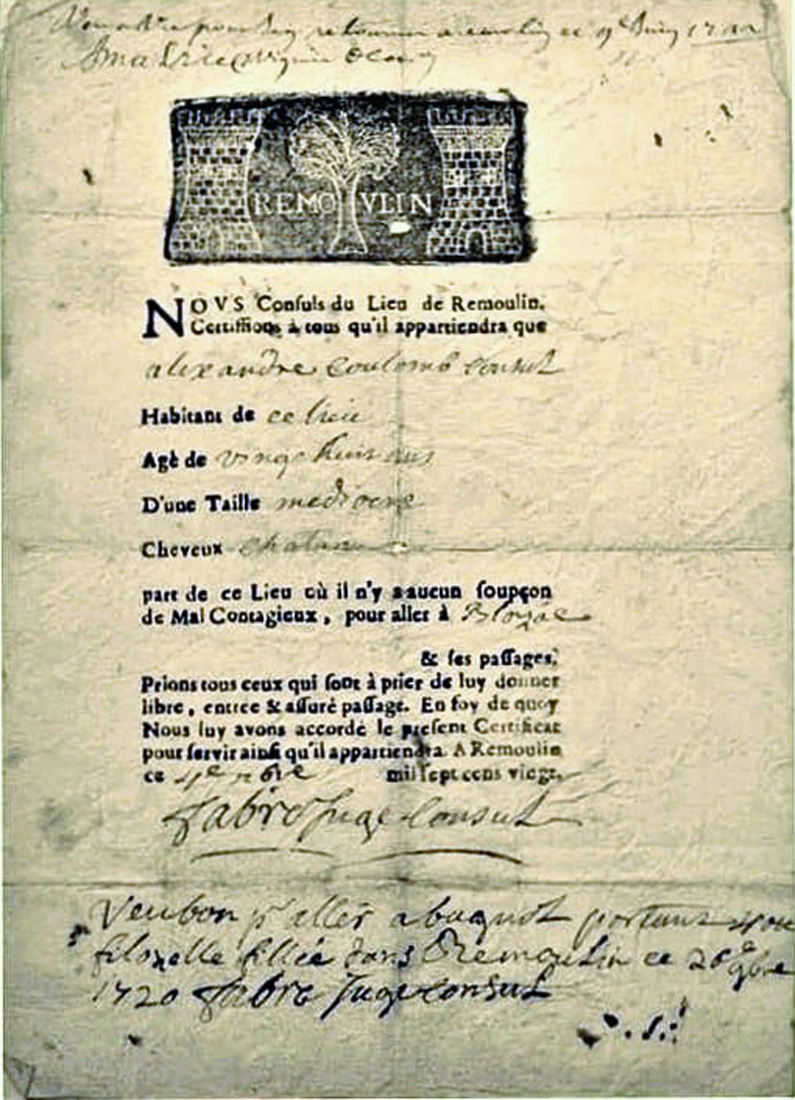 retourner a ce 9e Juin 172
REMOVLIN
NOVS Conſuls du Lieu de Remoulin.
Certiffions à tous qu'il appartiendra que
alexandre Coulomb Consul
Habitant de ce lieu
Agè de vingt huit ans
D'une Taille mediocre
Cheveux chatain
part de ce Lieu où il n'y a aucun ſoupçon
de Mal Contagieux, pour aller à Blozac
& ſes paſſages.
Prions tous ceux qui ſont à prier de luy donner
libre, entrée & aſſuré paſſage. En foy de quoy
Nous luy avons accordé le preſent Certificat
pour ſervir ainſi qu'il appartiendra. A Remoulin
ce 4e mil ſept cens vingt.
fabre Juge Consul
Veu bon pr aller a bagnol portant
filozelle fillée dans Remoulin ce 26e 9bre
1720 fabre Juge consul